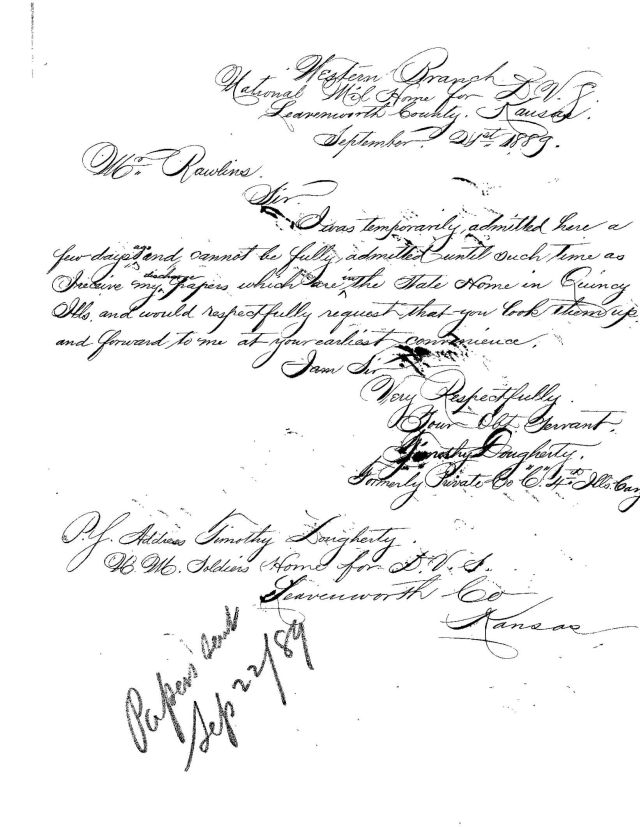 Western Branch D. V. S.
National Mil Home for
Leavenworth County. Kansas.
September. 21st 1889.
Mr. Rawlins.
Sir
I was temporarily admitted here a
few days ago and cannot be fully admitted until such time as
I receive my discharge papers which are in the State Home in Quincy
Ills. and would respectfully request that you look them up
and forward to me at your earliest convenience.
I am Sir
Very Respectfully.
Your Obt. Servant.
Timothy Dougherty.
Formerly Private Co "C". 4th Ills. Cav
P.S. Address Timothy Dougherty.
Soldiers Home for D. V. S.
Leavenworth Co
Kansas
Papers sent
Sep 22/89